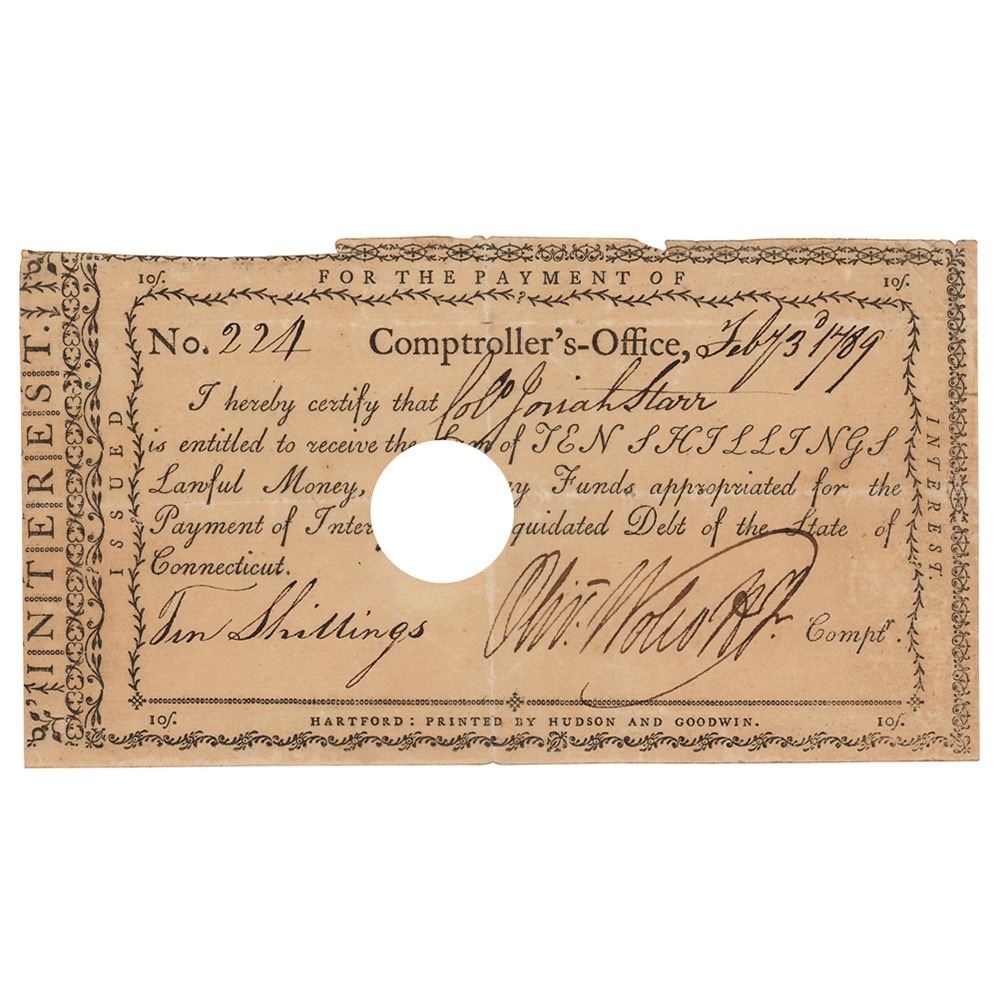 10ſ. FOR THE PAYMENT OF 10ſ.
No. 224 Comptroller's-Office, Feby 3d 1789
I hereby certify that Colo Josiah Starr
is entitled to receive the Sum of TEN SHILLINGS
Lawful Money, Funds appropriated for the
Payment of Inter quidated Debt of the State of
Connecticut.
Ten Shillings Olivr. Wolcott Jr. Comptr.
10ſ. HARTFORD: PRINTED BY HUDSON AND GOODWIN. 10ſ.
INTEREST.
ISSUED
INTEREST.